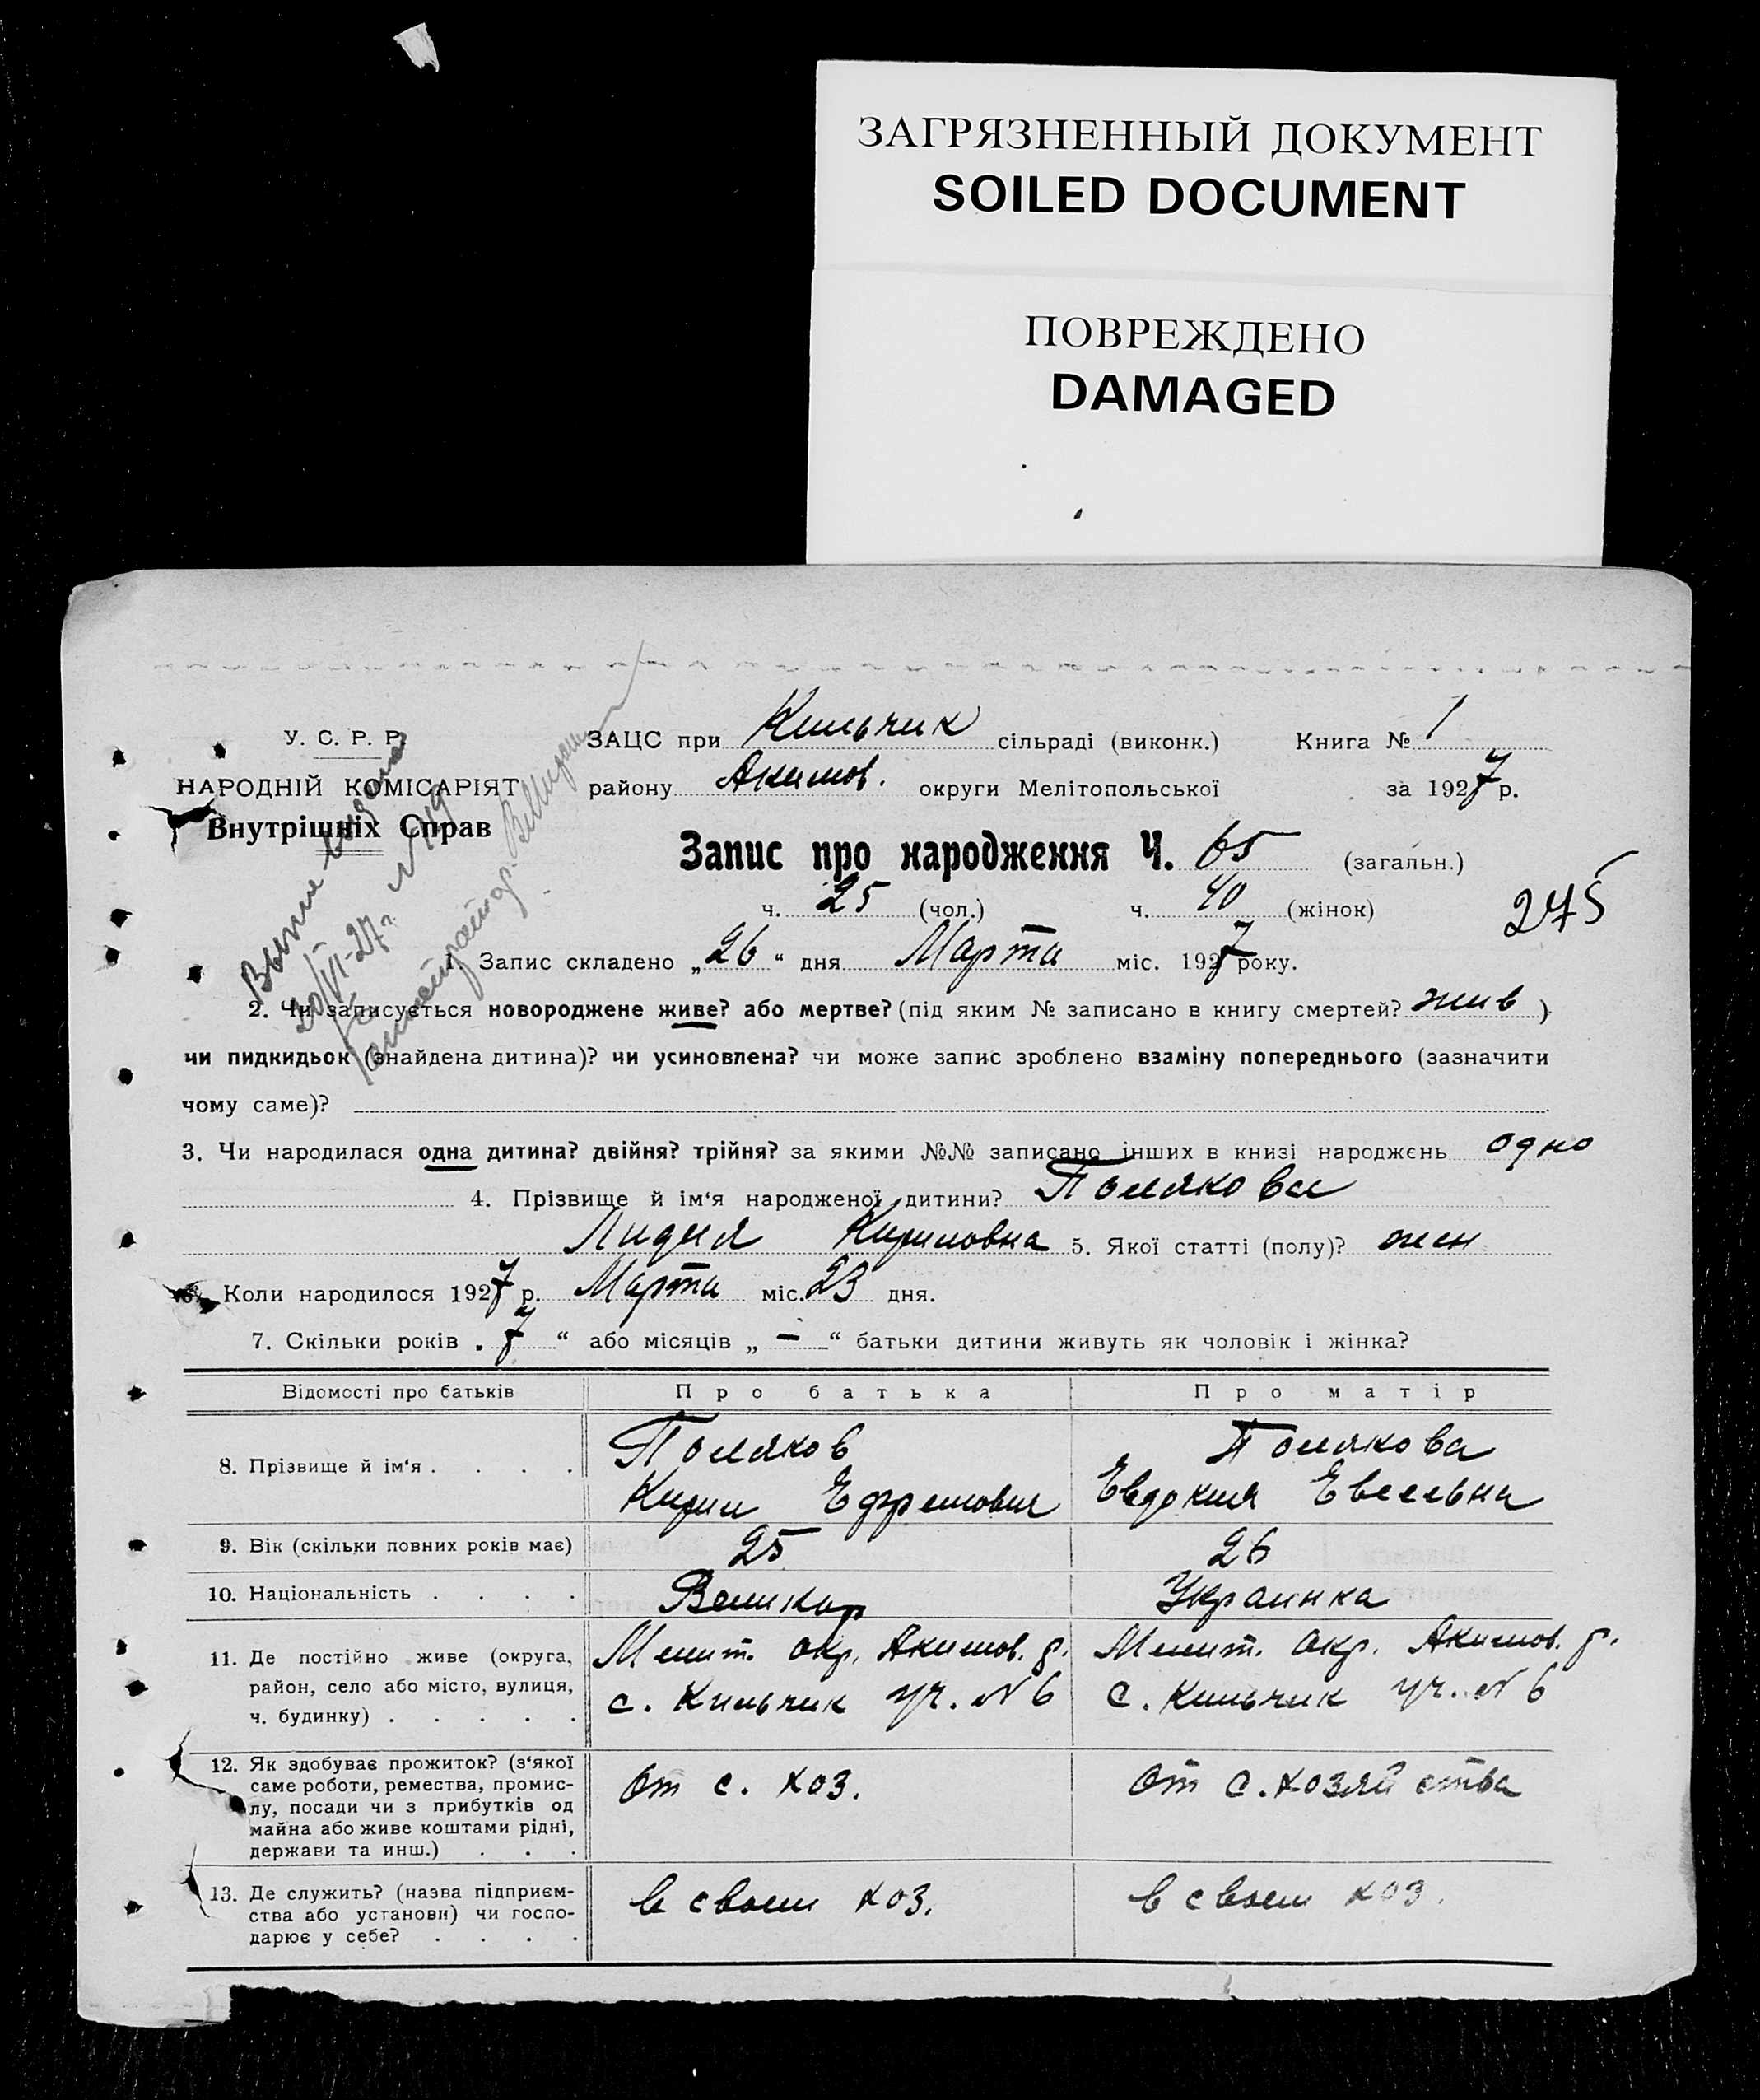 ЗАГРЯЗНЕННЫЙ ДОКУМЕНТ
SOILED DOCUMENT
ПОВРЕЖДЕНО
DAMAGED
У. С. Р. Р.
НАРОДНІЙ КОМІСАРІЯТ
Внутрішніх Справ
ЗАЦС при Кильчик сільраді (виконк.) Книга № 1
району Акимов. округи Мелітопольської за 1927 р.
Запис про народження Ч. 65 (загальн.)
ч. 25 (чол.) ч. 40 (жінок)
245
20/VI-27 г. №119
1. Запис складено „26“ дня Марта міс. 1927 року.
2. Чи записується новороджене живе? або мертве? (під яким № записано в книгу смертей? жив)
чи пидкидьок (знайдена дитина)? чи усиновлена? чи може запис зроблено взаміну попереднього (зазначити
чому саме)?
3. Чи народилася одна дитина? двійня? трійня? за якими №№ записано інших в книзі народжень одно
4. Прізвище й ім‘я народженої дитини? Полякова
Лидия Кириловна 5. Якої статті (полу)? жен
6. Коли народилося 1927 р. Марта міс. 23 дня.
7. Скільки років „7“ або місяців „—“ батьки дитини живуть як чоловік і жінка?
Відомості про батьків Про батька Про матір
8. Прізвище й ім‘я . . . .
Поляков
Кирил Ефремович
Полякова
Евдокия Евсеевна
9. Вік (скільки повних років має) 25 26
10. Національність . . . . Великор Украинка
11. Де постійно живе (округа,
район, село або місто, вулиця,
ч. будинку) . . . . .
Мелит. окр. Акимов. р.
с. Кильчик уч. №6
Мелит. окр. Акимов. р.
с. Кильчик уч. №6
12. Як здобуває прожиток? (з‘якої
саме роботи, ремества, промис-
лу, посади чи з прибутків од
майна або живе коштами рідні,
держави та инш.) . . .
От с. хоз.
От с. хозяйства
13. Де служить? (назва підприєм-
ства або установи) чи госпо-
дарює у себе? . . . .
в своем хоз.
в своем хоз.